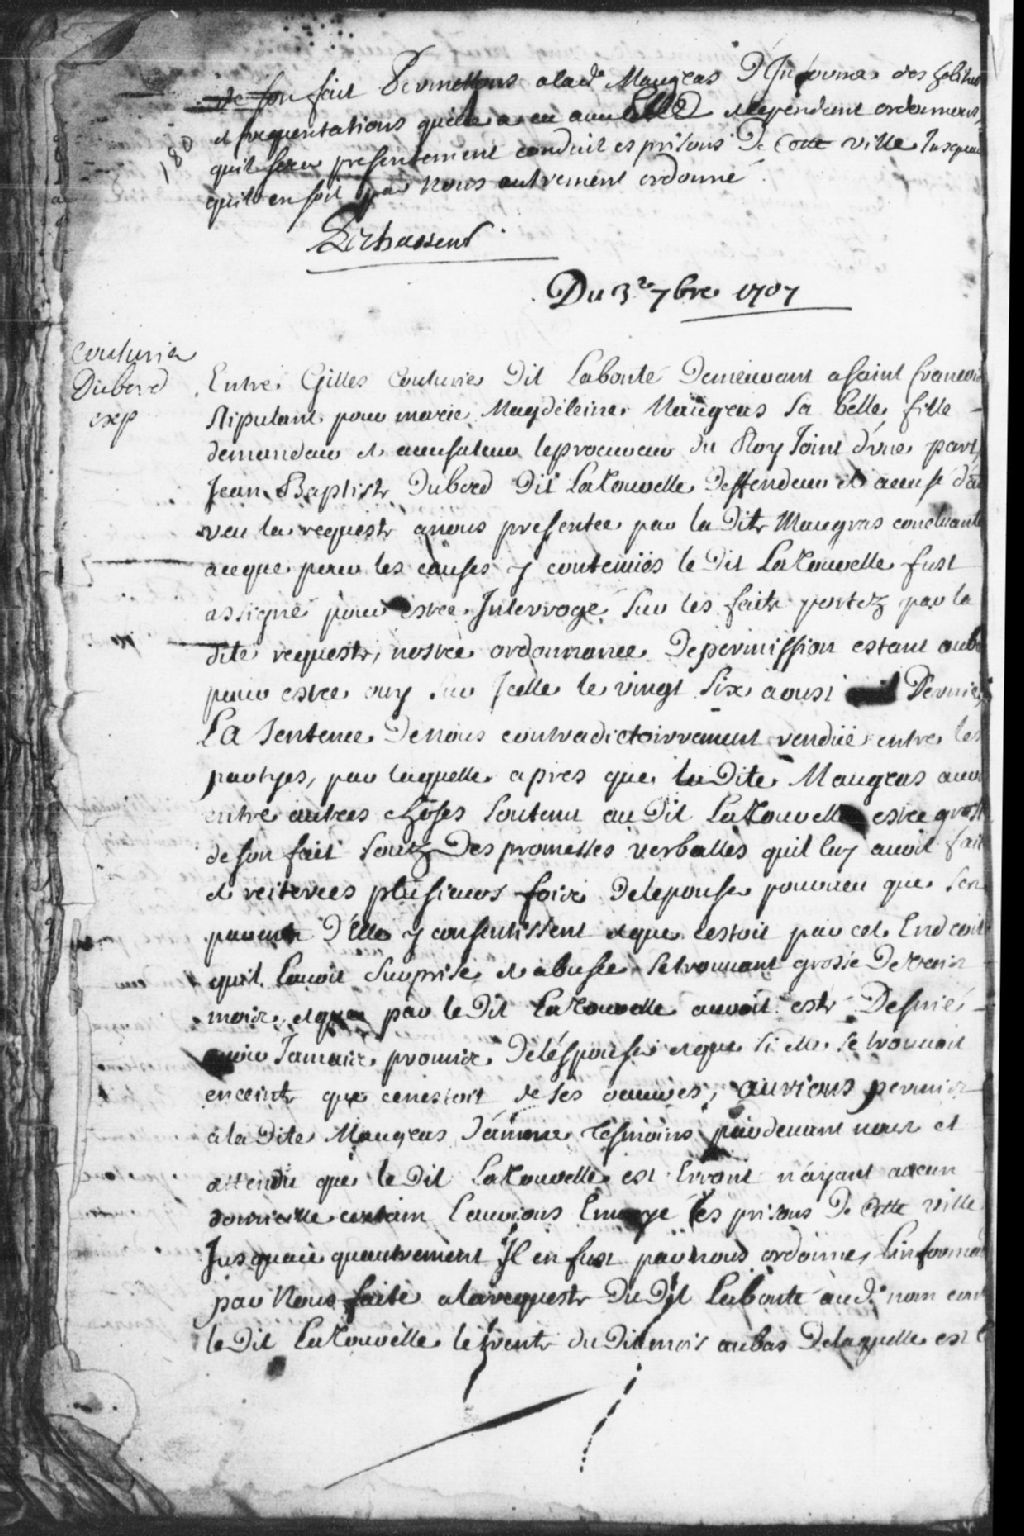 de son fait Permettons a lad. Maugras D'Informer des hebitudes
et frequentations quelle a eu avec Elle et cependant ordonnons
quil sera presentement conduit es prisons De Cette ville Jusqua
quil en soit par Nous autrement ordonné.
180
Du 3e 7bre 1707
Couturier
Dubord
exp
Entre Gilles Couturier Dit Labonté Demeurant a saint francois
stipulant pour marie Magdeleine Maugras sa belle fille
demandeur et accusateur le procureur du Roy Joint d'une part
Jean Baptiste Dubord Dit LaTourelle Deffendeur et accusé d'au
veu la requeste a nous presentée par la Dite Maugras concluante
a ce que pour les causes y contenües le Dit LaTourelle fust
assigné pour estre Interrogé sur les faits portez par la
dite requeste, nostre ordonnance De permission estant au bas
pour estre ouy sur Icelle le vingt six aoust Dernier
La Sentence De nous contradictoirement rendüe entre les
partyes, par laquelle apres que la Dite Maugras auroit
entre autres choses soutenu au Dit LaTourelle estre grosse
de son fait soubz Des promesses verballes quil luy avoit fait
et reiterées plusieurs fois De lepouser pourveu que ses
parents D'Elle y consentissent et que cestoit par cet Endroit
quil lavoit surprise et abusée se trouvant grosse De trois
mois, et que par le Dit LaTourelle auroit esté Desnié
avoir Jamais promis De lésponser et que si elle se trouvoit
enceinte que cenestoit de ses oeuvres, aurions permis
a la Dite Maugras D'amener tesmoins pardevant nous et
attendu que le Dit LaTourelle est Errant n'ayant aucun
domicille certain Laurions Envoyé es prisons De Cette ville
Jusqua ce quautrement Il en fust par nous ordonné, Linformation
par Nous faite a la requeste Du Dit Labonté aud. nom contre
le Dit LaTourelle le trente du Dit mois au bas De laquelle est